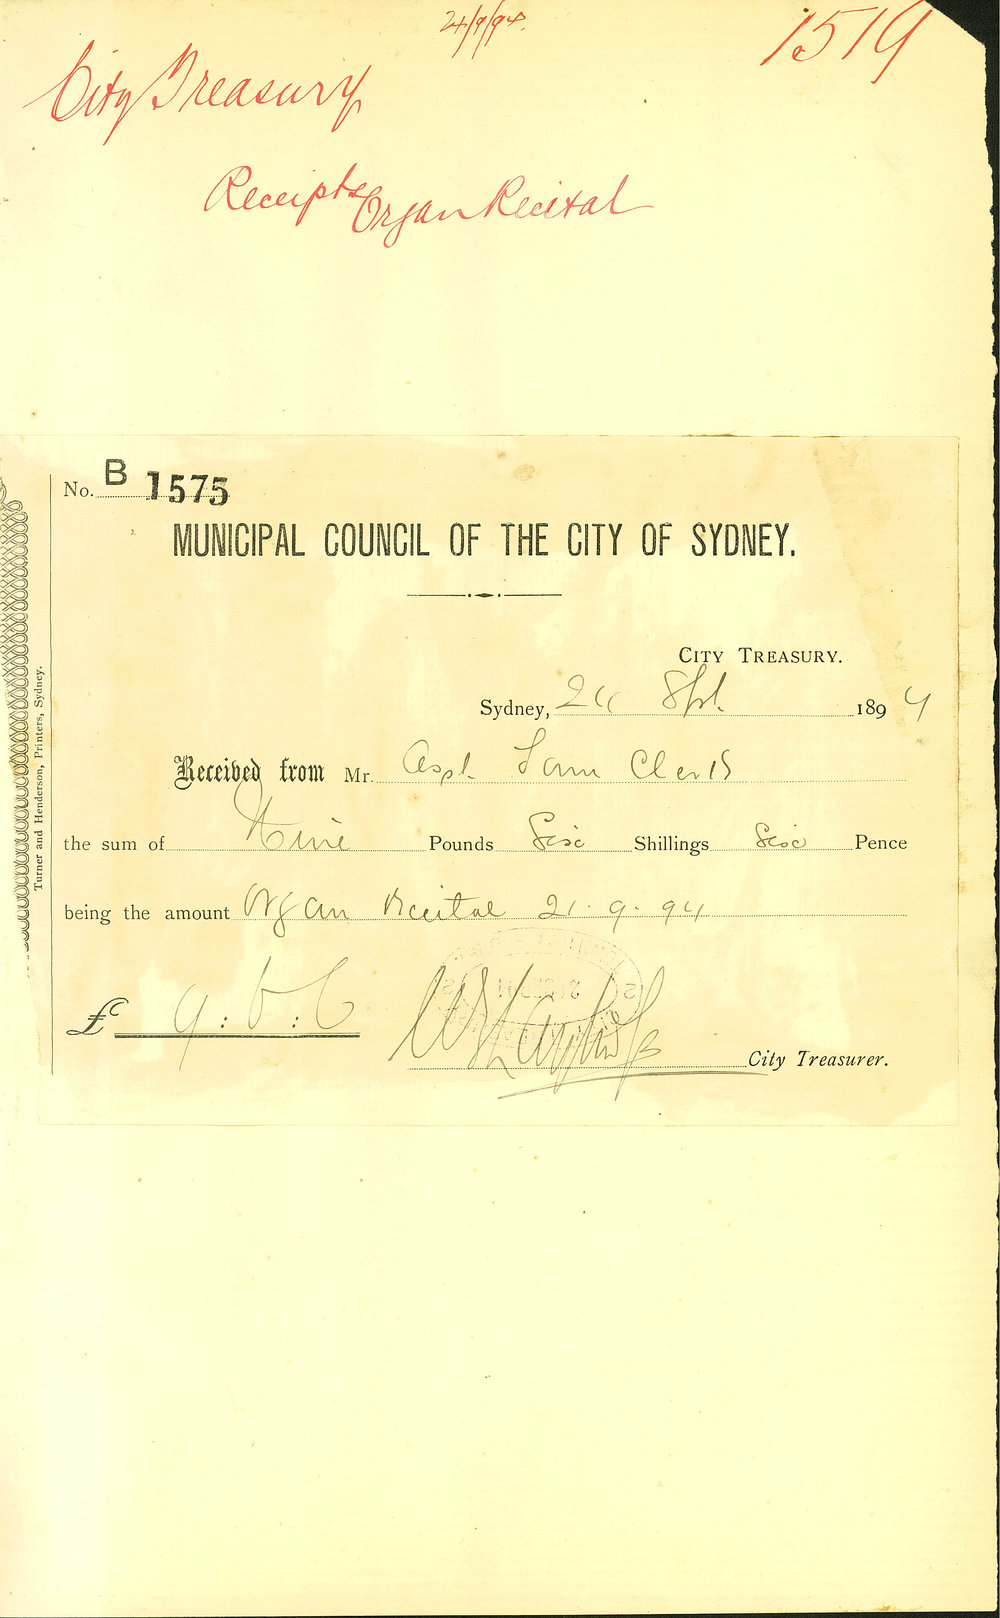 21/9/94.
1519
City Treasury
Receipts Organ Recital
No. B 1575
MUNICIPAL COUNCIL OF THE CITY OF SYDNEY.
CITY TREASURY.
Sydney, 24 Sept. 1894
Received from Mr. Asst. Town Clerk
the sum of Nine Pounds Six Shillings Six Pence
being the amount Organ Recital 21.9.94
£ 9:6:6
City Treasurer.
Turner and Henderson, Printers, Sydney.